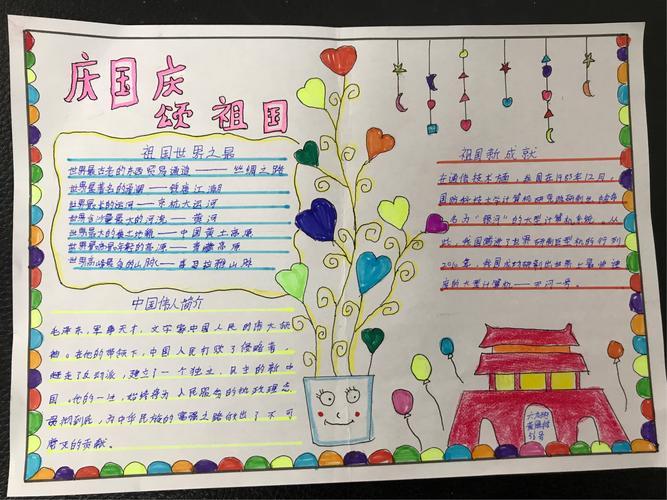 庆国庆
颂祖国
祖国世界之最
世界最古老的东西贸易通道——丝绸之路
世界最著名的涌潮——钱塘江潮
世界最长的运河——京杭大运河
世界含沙量最大的河流——黄河
世界最大的黄土地貌——中国黄土高原
世界最高最年轻的高原——青藏高原
世界高峰最多的山脉——喜马拉雅山脉
中国伟人简介
毛泽东,军事天才,文学家中国人民的伟大领
袖。在他的带领下,中国人民打败了侵略者,
赶走了反动派,建立了一个独立、民主的新中
国。他的一生,始终将为人民服务的执政理念
贯彻到底,为中华民族的富强之路做出了不可
磨灭的贡献。
祖国新成就
在通信技术方面,我国在1983年12月,
国防科技大学计算机研究所研制出
名为“银河”的大型计算机系统,从
此,我国跨进了世界研制巨型机的行列
2010年,我国成功研制出世界上最快速
度的大型计算机——天河一号。